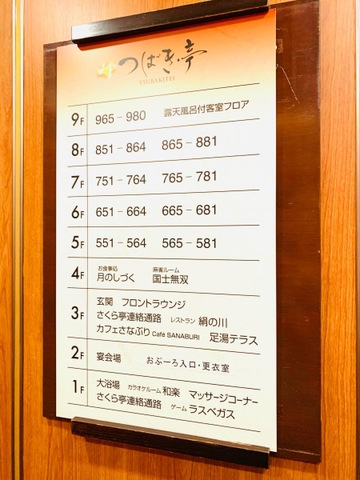 つばき亭
TSUBAKITEI
9F 965－980 露天風呂付客室フロア
8F 851－864 865－881
7F 751－764 765－781
6F 651－664 665－681
5F 551－564 565－581
4F お食事処 月のしづく 麻雀ルーム 国士無双
3F 玄関 フロントラウンジ
さくら亭連絡通路 レストラン 絹の川
カフェさなぶり Café SANABURI 足湯テラス
2F 宴会場 おぶーろ入口・更衣室
1F 大浴場 カラオケルーム 和楽 マッサージコーナー
さくら亭連絡通路 ゲーム ラスベガス